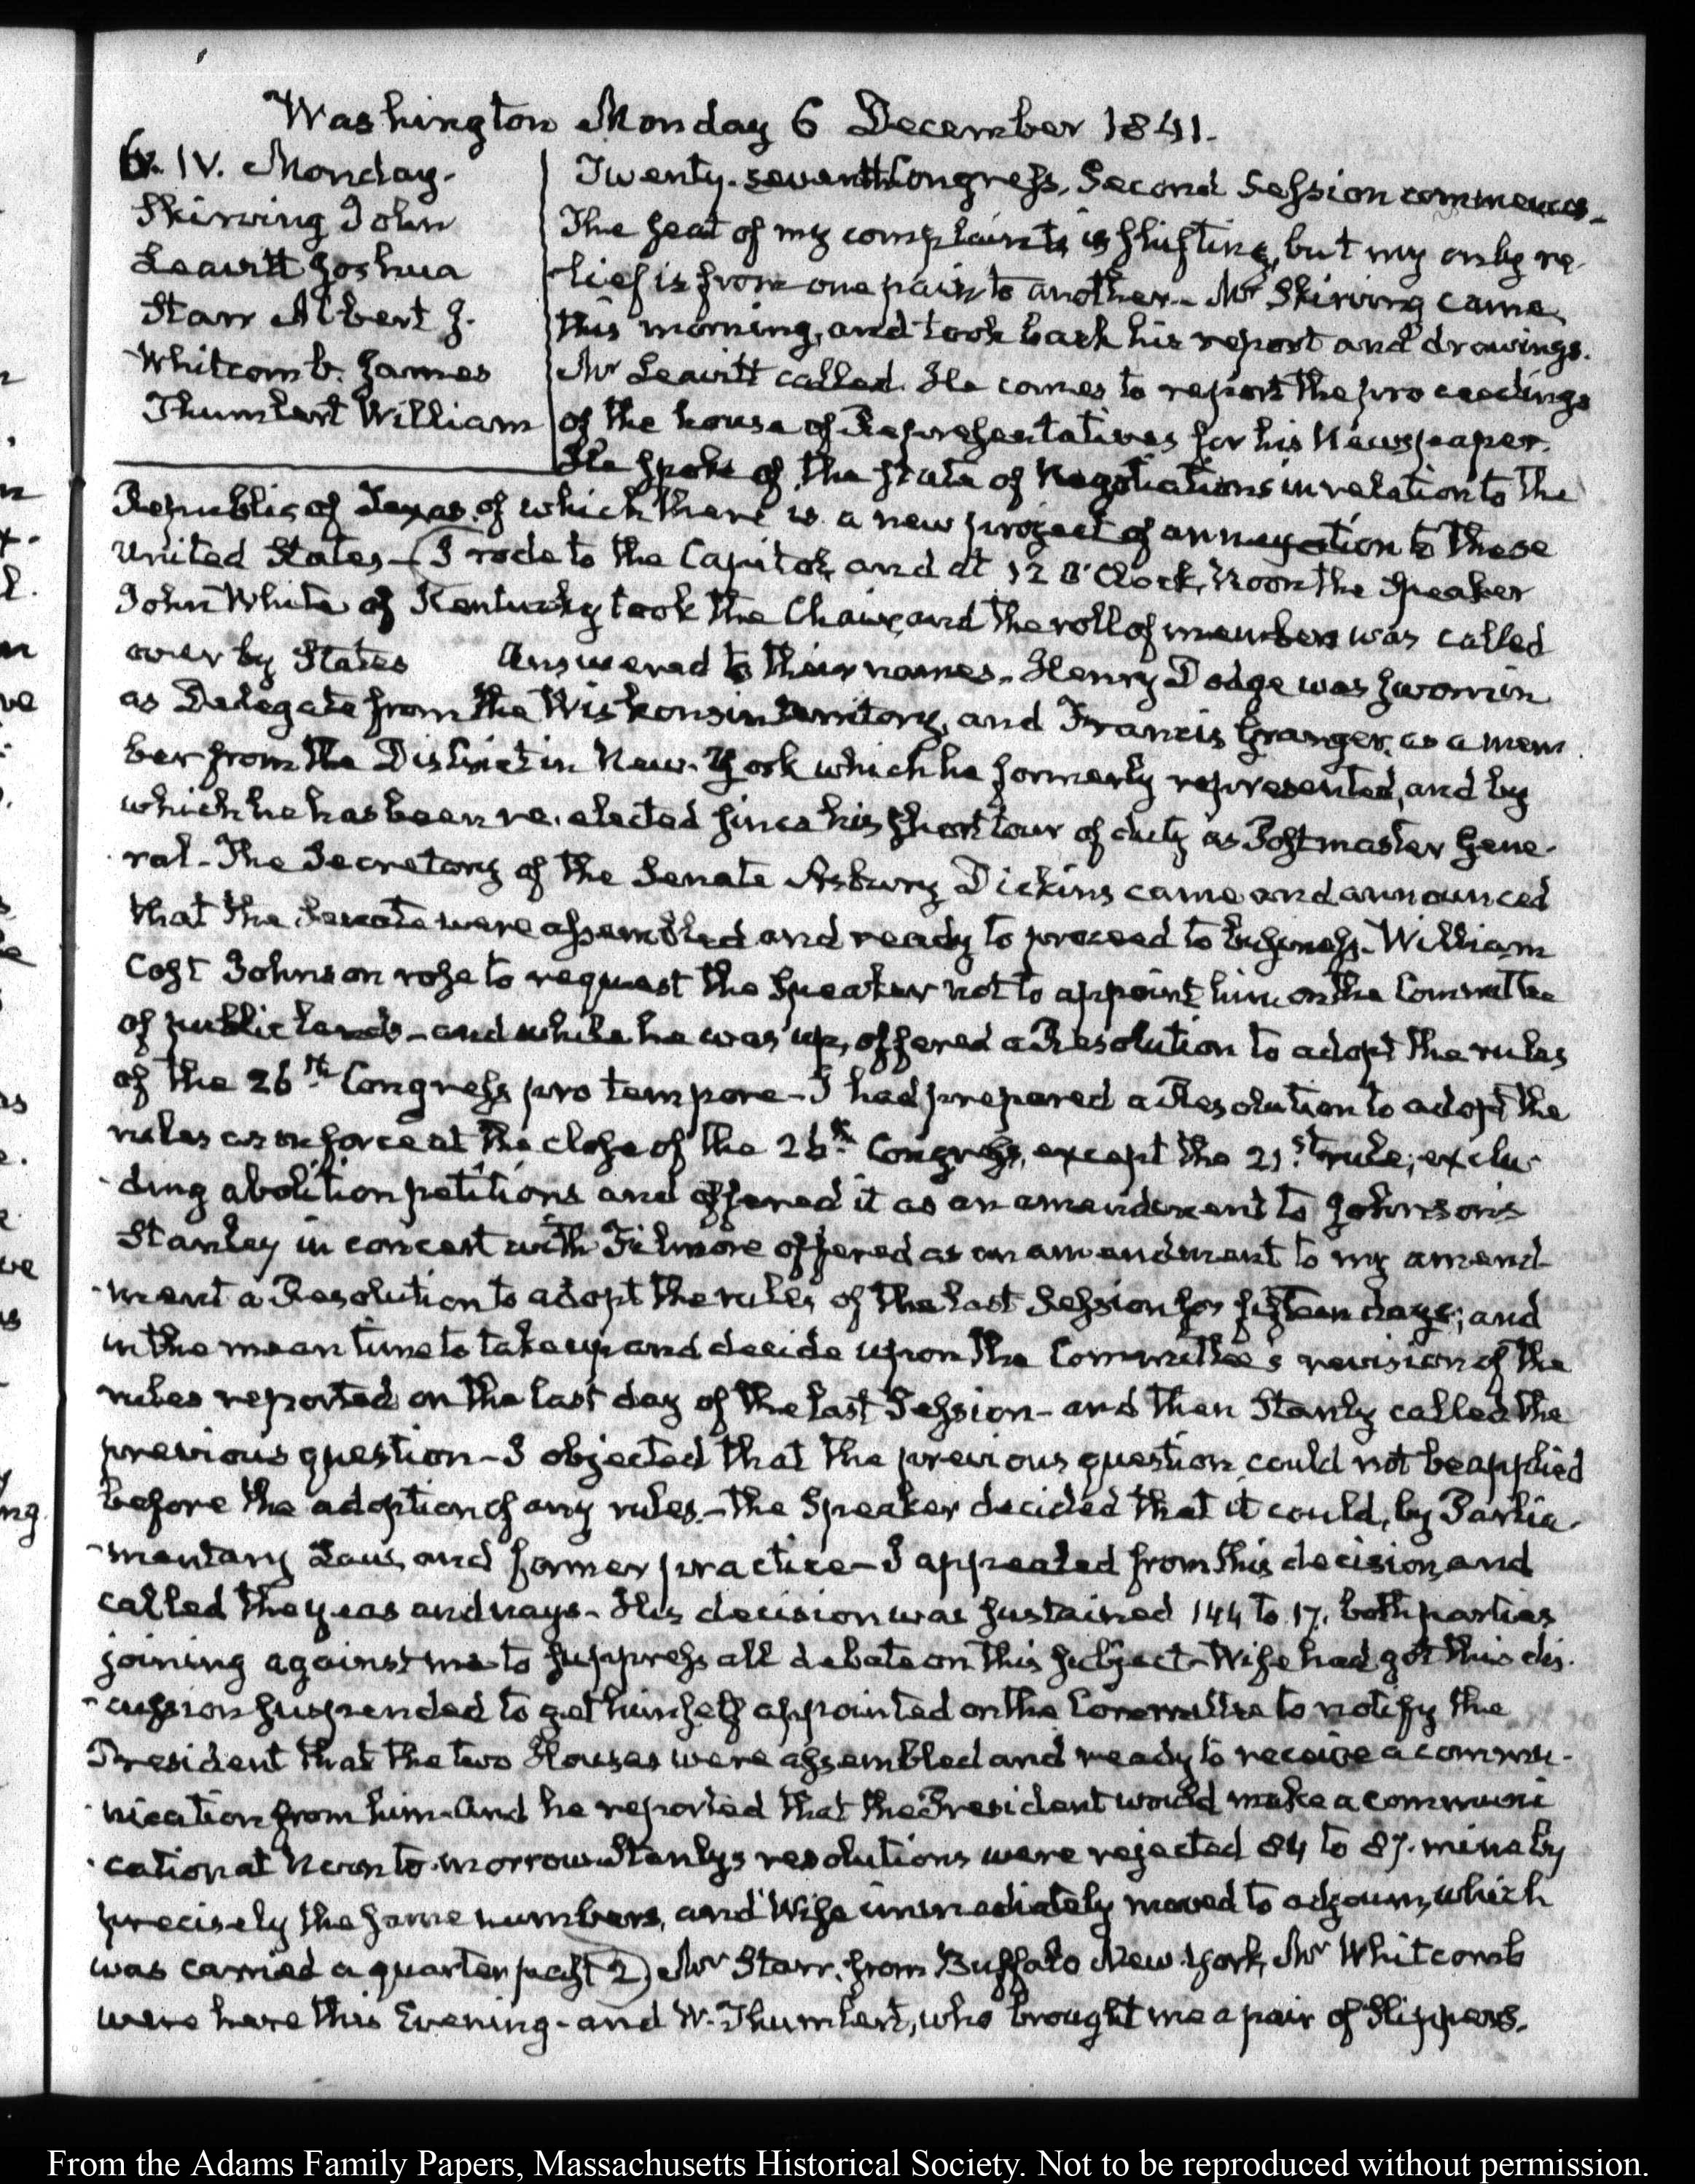 Washington Monday 6 December 1841.
6. IV. Monday.
Skirving John
Leavitt Joshua
Starr Albert J.
Whitcomb. James
Thumlert William
Twenty-seventh Congress, Second Session commences.
The seat of my complaints is shifting, but my only re-
lief is from one pain to another- Mr Skirving came
this morning, and took back his report and drawings.
Mr Leavitt called. He comes to report the proceedings
of the house of Representatives for his Newspaper.
He spoke of the state of Negotiations in relation to the
Republic of Texas, of which there is a new project of annexation to these
United States- (I rode to the Capitol, and at 12 O'Clock, Noon the Speaker
John White of Kentucky took the Chair, and the roll of members was called
over by States answered to their names- Henry Dodge was sworn in
as Delegate from the Wiskonsin territory, and Francis Granger, as a mem-
ber from the District in New-York which he formerly represented, and by
which he has been re-elected since his short tour of duty as Postmaster Gene-
ral- The Secretary of the Senate Asbury Dickins came and announced
that the Senate were assembled and ready to proceed to business- William
Cost Johnson rose to request the Speaker not to appoint him on the Committee
of public lands- and while he was up, offered a Resolution to adopt the rules
of the 26th Congress pro tempore- I had prepared a Resolution to adopt the
rules as in force at the close of the 26th Congress, except the 21st rule, exclu-
ding abolition petitions and offered it as an amendment to Johnson's
Stanley in concert with Filmore offered as an amendment to my amend-
ment a Resolution to adopt the rules of the last Session for fifteen days; and
in the mean time to take up and decide upon the Committee's revision of the
rules reported on the last day of the last Session- and then Stanly called the
previous question- I objected that the previous question could not be applied
before the adoption of any rules.- the Speaker decided that it could, by Parlia-
mentary Law, and former practice- I appealed from this decision, and
called the yeas and nays- His decision was sustained 144 to 17, both parties
joining against me to suppress all debate on this subject- Wise had got this dis-
cussion suspended to get himself appointed on the Committee to notify the
President that the two Houses were assembled and ready to receive a commu-
nication from him- And he reported that the President would make a communi
cation at Noon to-morrow Stanly's resolutions were rejected 84 to 87. mine by
precisely the same numbers, and Wise immediately moved to adjourn, which
was carried a quarter past 2) Mr Starr, from Buffalo New-York, Mr Whitcomb
were here this Evening- and W. Thumlert, who brought me a pair of Slippers.
From the Adams Family Papers, Massachusetts Historical Society. Not to be reproduced without permission.